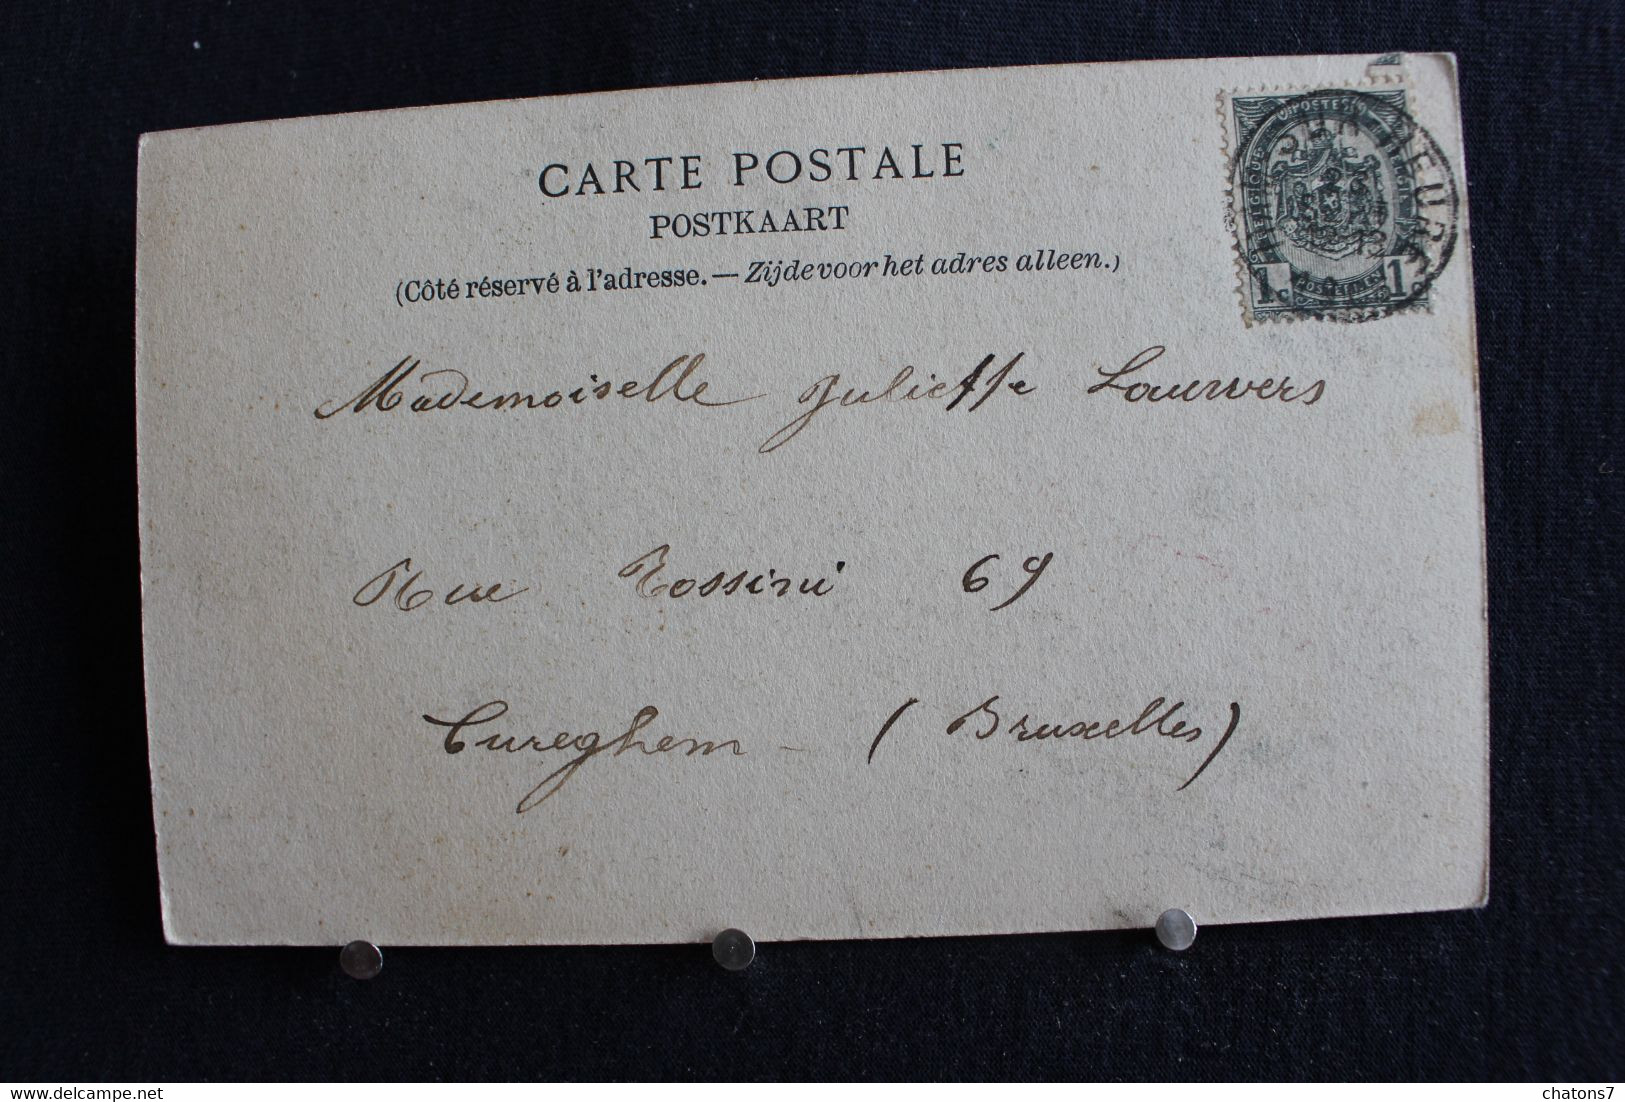 CARTE POSTALE
POSTKAART
(Côté réservé à l'adresse. — Zijde voor het adres alleen.)
POSTES
1c 1c
Mademoiselle Juliette Lauwers
Rue Rossini 69
Cureghem - (Bruxelles)
http://www.delcampe.net
chatons7